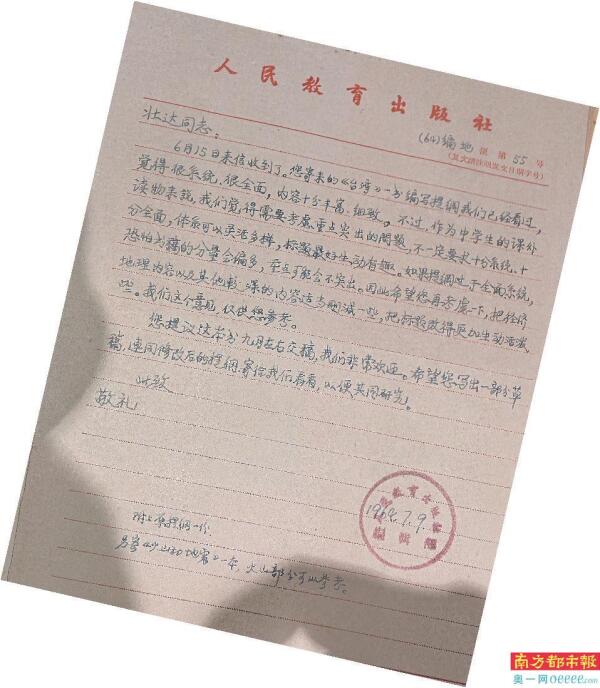 人民教育出版社
(64)编地 第55号
(复文请注明发文日期字号)
壮达同志：
6月15日来信收到了。您寄来的《台湾》一书编写提纲我们已经看过，
觉得很系统、很全面，内容十分丰富、细致。不过，作为中学生的课外
读物来说，我们觉得需要考虑重点突出的问题，不一定要求十分系统、十
分全面，体系可以灵活多样，标题最好生动有趣。如果提纲过于全面系统，
恐怕书籍的分量会偏多，重点可能会不突出。因此希望您再考虑一下，把经济
地理内容以及其他的内容适当删减一些，把标题改得更加生动活泼
些。我们这个意见，仅供您参考。
您提议这本书九月左右交稿，我们非常欢迎。希望您写出一部分草
稿，连同修改后的提纲寄给我们看看，以便共同研究。
此致
敬礼！
1964.7.9.
附上原提纲一份
另寄《火山和地震》一本，火山部分可以参考。
南方都市报
奥一网oeeee.com